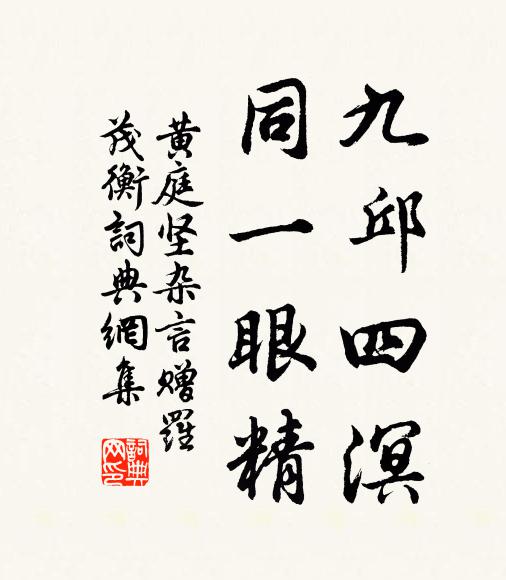 九邱四溟
同一眼精
黄庭坚杂言赠羅
茂衡詞典網集
詞典網印